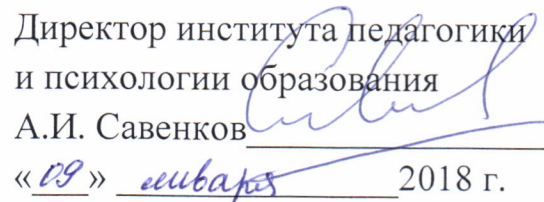 Директор института педагогики
и психологии образования
А.И. Савенков
«09» января 2018 г.